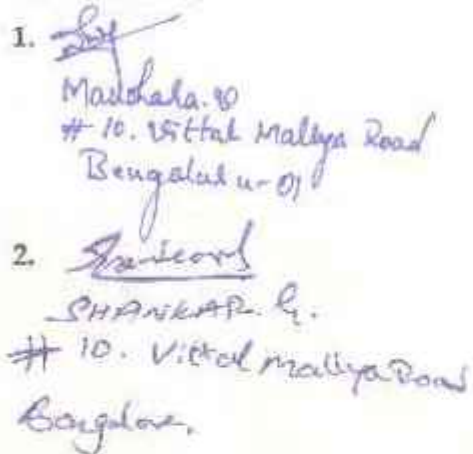 1.
Manohala.
# 10. Vittal Mallya Road
Bengaluru-01
2.
SHANKAR. G.
# 10. Vittal Mallya Road
Bangalore.